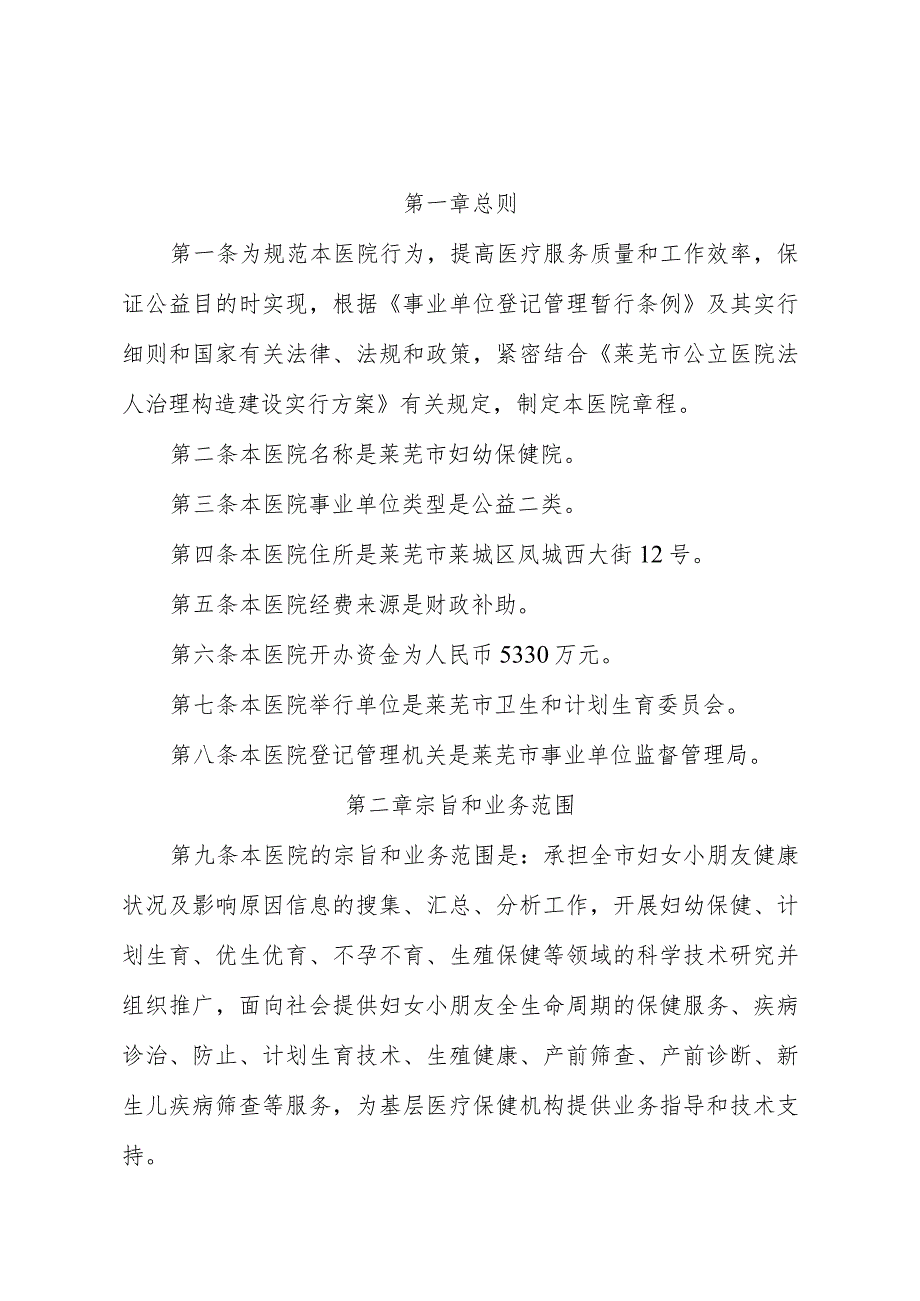 第一章总则
第一条为规范本医院行为，提高医疗服务质量和工作效率，保
证公益目的时实现，根据《事业单位登记管理暂行条例》及其实行
细则和国家有关法律、法规和政策，紧密结合《莱芜市公立医院法
人治理构造建设实行方案》有关规定，制定本医院章程。
第二条本医院名称是莱芜市妇幼保健院。
第三条本医院事业单位类型是公益二类。
第四条本医院住所是莱芜市莱城区凤城西大街 12 号。
第五条本医院经费来源是财政补助。
第六条本医院开办资金为人民币 5330 万元。
第七条本医院举行单位是莱芜市卫生和计划生育委员会。
第八条本医院登记管理机关是莱芜市事业单位监督管理局。
第二章宗旨和业务范围
第九条本医院的宗旨和业务范围是：承担全市妇女小朋友健康
状况及影响原因信息的搜集、汇总、分析工作，开展妇幼保健、计
划生育、优生优育、不孕不育、生殖保健等领域的科学技术研究并
组织推广，面向社会提供妇女小朋友全生命周期的保健服务、疾病
诊治、防止、计划生育技术、生殖健康、产前筛查、产前诊断、新
生儿疾病筛查等服务，为基层医疗保健机构提供业务指导和技术支
持。